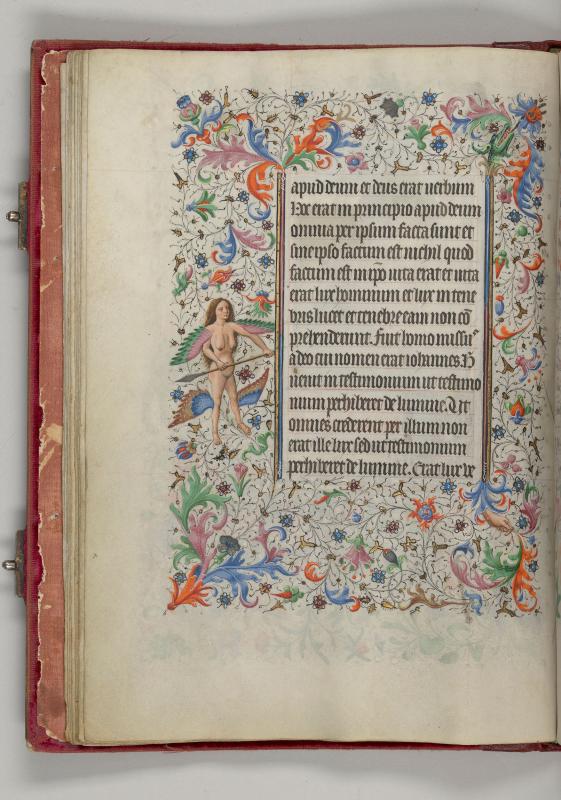 apud deum et deus erat uerbum
Hoc erat in principio apud deum
omnia per ipsum facta sunt et
sine ipso factum est nichil quod
factum est in ip̄o uita erat et uita
erat lux hominum et lux in tene
bris lucet et tenebre eam non cō
prehenderunt. Fuit homo missu⁹
a deo cui nomen erat iohannes. H̄
uenit in testimonium ut testimo
nium perhiberet de lumine. Ut
omnes crederent per illum non
erat ille lux sed ut testimonium
perhiberet de lumine. Erat lux ve